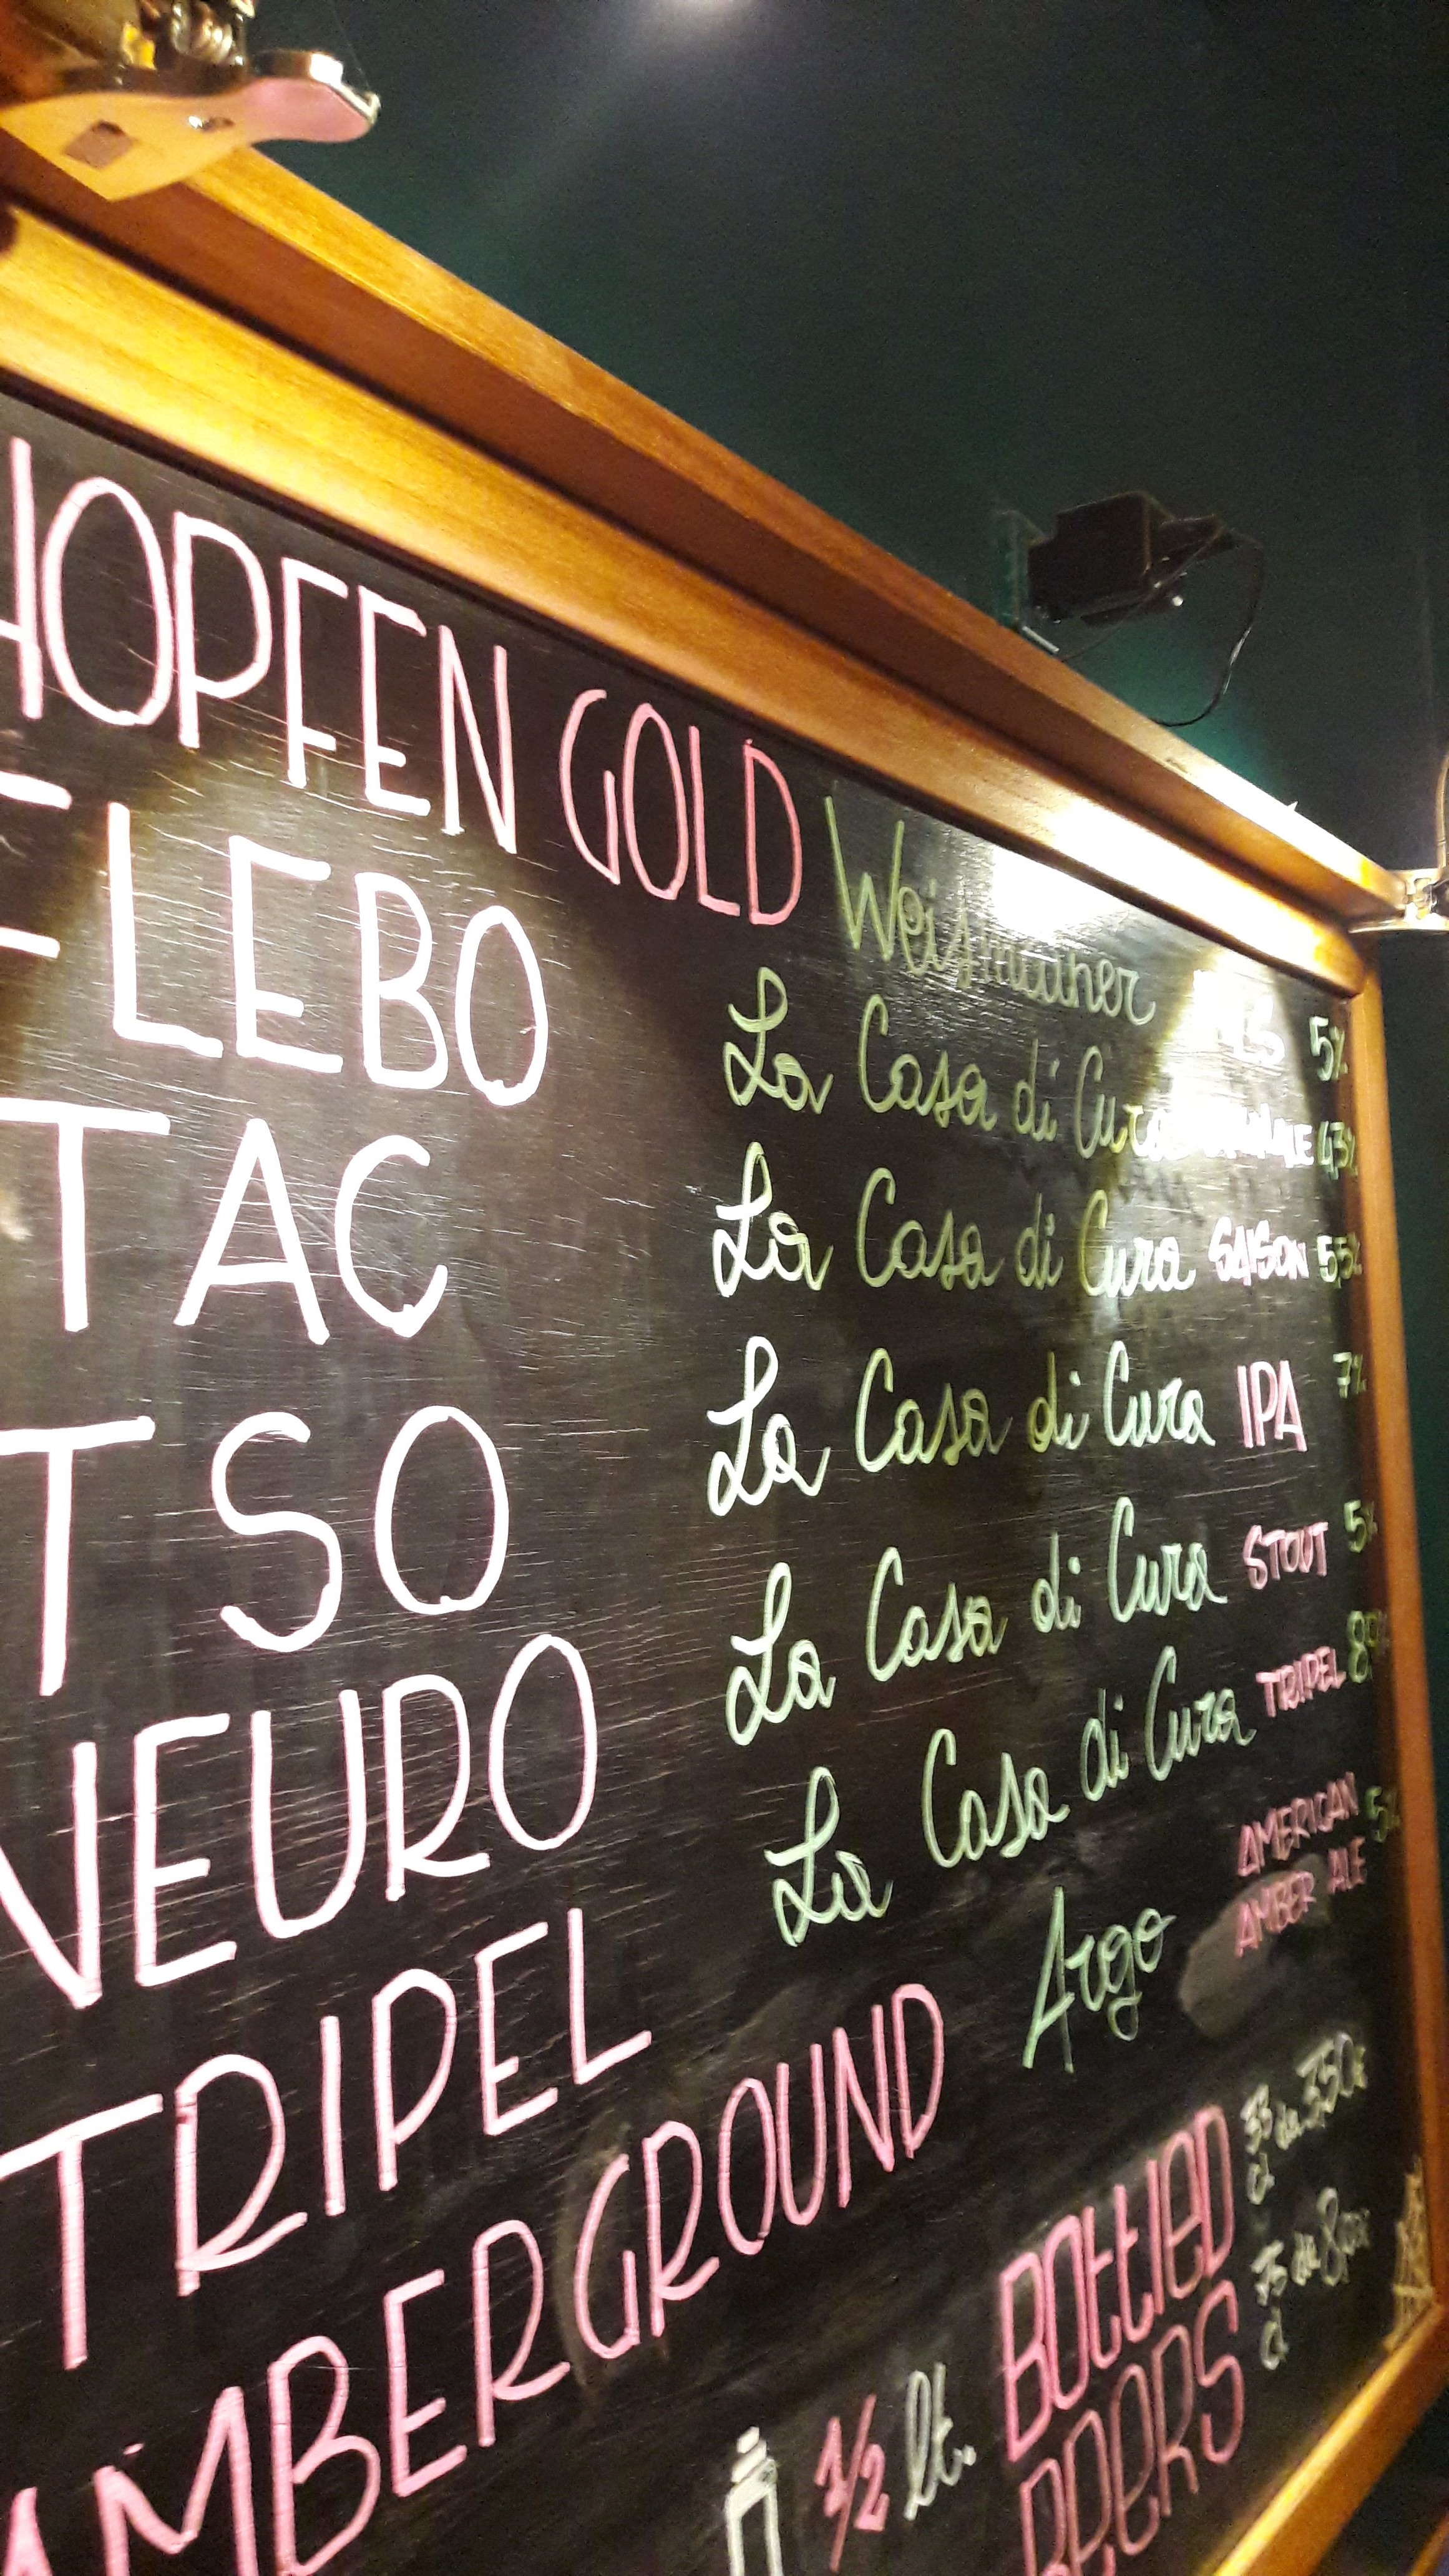 HOPFEN GOLD Weismainer 5%
FLEBO La Casa di Cura 4,5%
TAC La Casa di Cura SAISON 5,5%
TSO La Casa di Cura IPA 7%
NEURO La Casa di Cura STOUT 5%
TRIPEL La Casa di Cura TRIPEL
AMBERGROUND Argo AMERICAN 5%
AMBER ALE
1/2 lt. BOttlED 33 cl da 3,50€
BEERS 75 cl da 8,00€